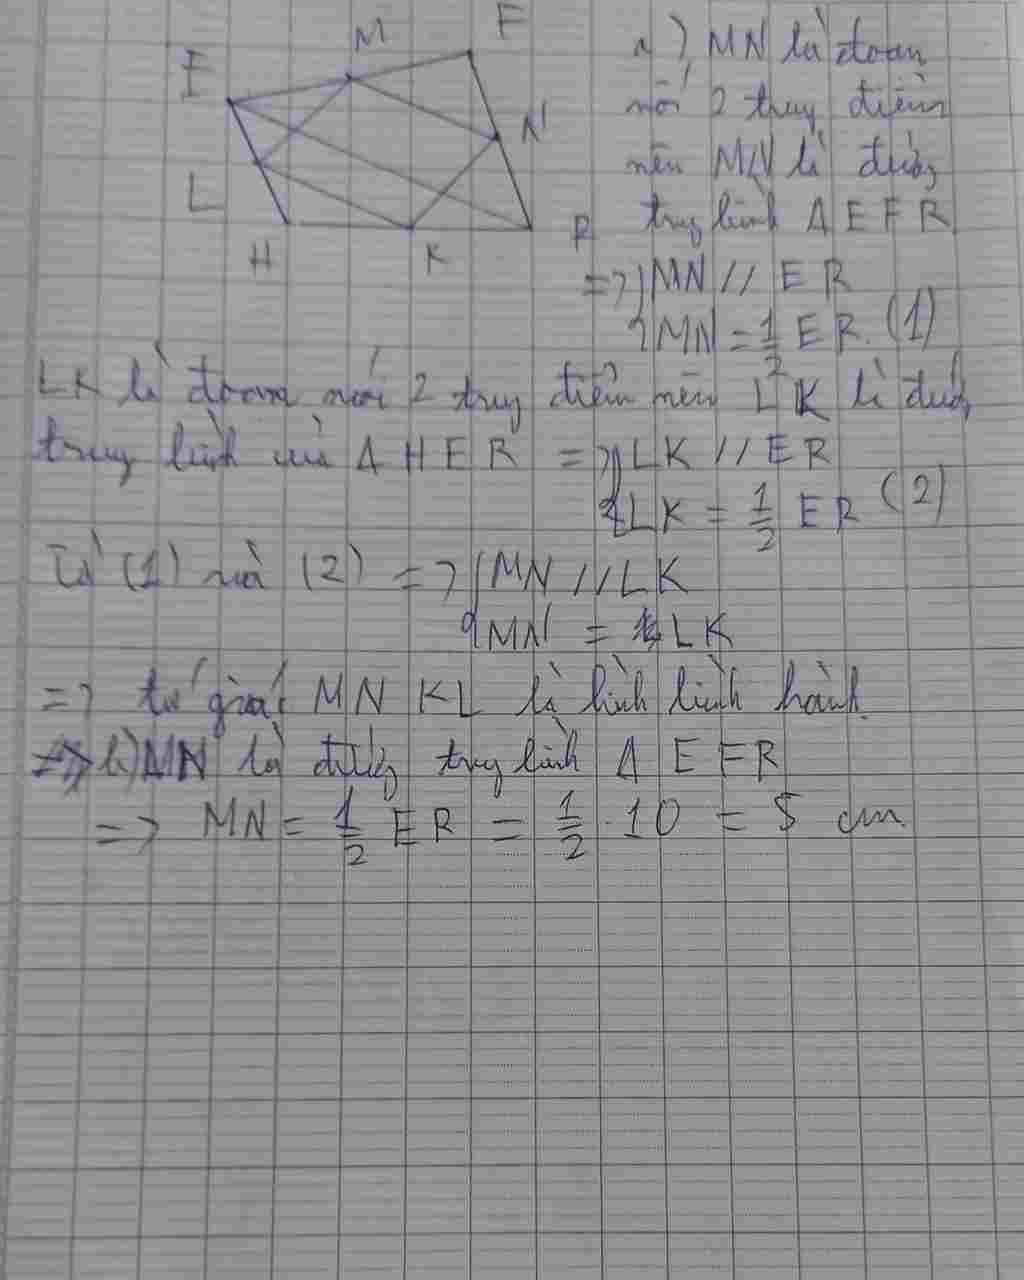 M
F
E
N
L
R
H
K
a) MN là đoạn
nối 2 trung điểm
nên MN là đường
trung bình Δ EFR
=> { MN // ER
MN = 1/2 ER. (1)
LK là đoạn nối 2 trung điểm nên LK là đường
trung bình của Δ HER => { LK // ER
LK = 1/2 ER (2)
Từ (1) và (2) => { MN // LK
MN = LK
=> tứ giác MNKL là hình bình hành.
b) MN là đường trung bình Δ EFR
=> MN = 1/2 ER = 1/2 . 10 = 5 cm.